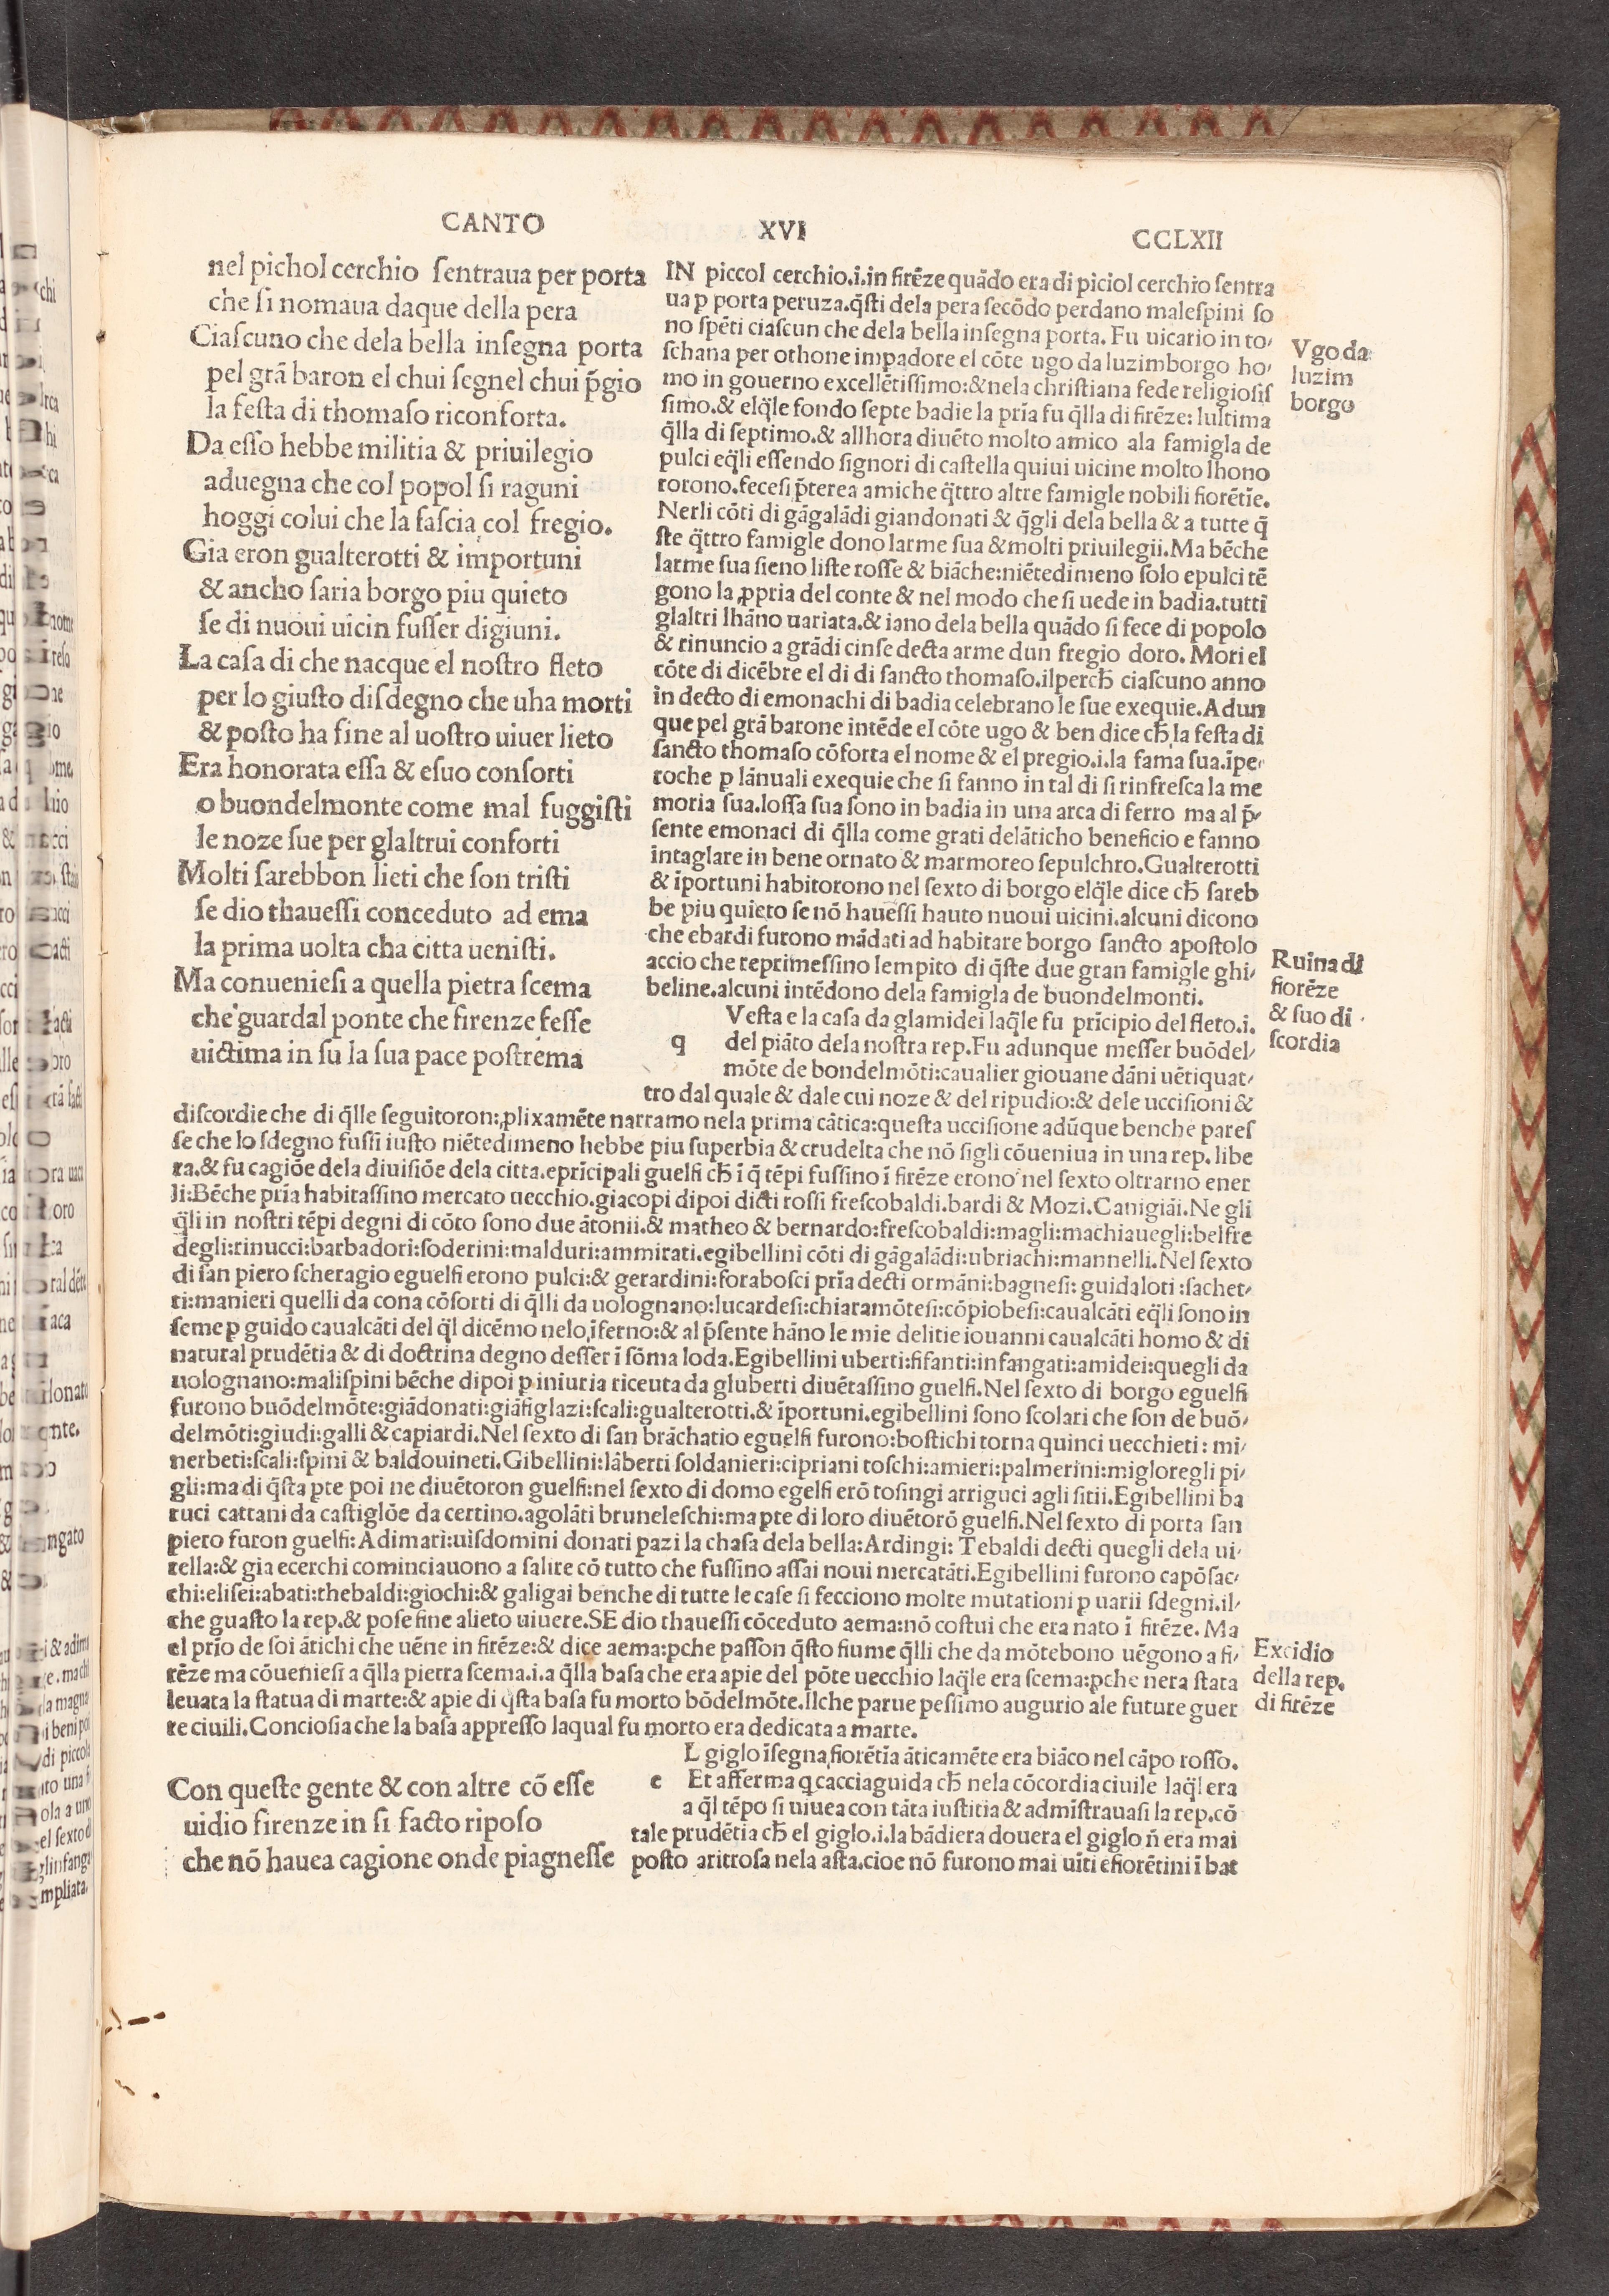 CANTO XVI CCLXII
nel pichol cerchio ſentraua per porta
che ſi nomaua daque della pera
Ciaſcuno che dela bella inſegna porta
pel grā baron el chui ſegnel chui p̄gio
la feſta di thomaſo riconforta.
Da eſſo hebbe militia & priuilegio
aduegna che col popol ſi raguni
hoggi colui che la faſcia col fregio.
Gia eron gualterotti & importuni
& ancho ſaria borgo piu quieto
ſe di nuoui uicin fuſſer digiuni.
La caſa di che nacque el noſtro fleto
per lo giuſto diſdegno che uha morti
& poſto ha fine al uoſtro uiuer lieto
Era honorata eſſa & eſuo conſorti
o buondelmonte come mal fuggiſti
le noze ſue per glaltrui conforti
Molti ſarebbon lieti che ſon triſti
ſe dio thaueſſi conceduto ad ema
la prima uolta cha citta ueniſti.
Ma conuenieſi a quella pietra ſcema
che guardal ponte che firenze feſſe
uictima in ſu la ſua pace poſtrema
IN piccol cerchio.i.in firēze quādo era di piciol cerchio ſentra
ua p porta peruza.q̄ſti dela pera ſecōdo perdano maleſpini ſo
no ſpēti ciaſcun che dela bella inſegna porta. Fu uicario in to/
ſchana per othone impadore el cōte ugo da luzimborgo ho/
mo in gouerno excellētiſſimo:& nela chriſtiana fede religioſiſ
ſimo.& elq̄le fondo ſepte badie la pria fu q̄lla di firēze: lultima
q̄lla di ſeptimo.& allhora diuēto molto amico ala famigla de
pulci eq̄li eſſendo ſignori di caſtella quiui uicine molto lhono
rorono.feceſi p̄terea amiche q̄ttro altre famigle nobili fiorētīe.
Nerli cōti di gāgalādi giandonati & q̄gli dela bella & a tutte q̄
ſte q̄ttro famigle dono larme ſua & molti priuilegii. Ma bēche
larme ſua ſieno liſte roſſe & biāche:niētedimeno ſolo epulci tē
gono la ꝓpria del conte & nel modo che ſi uede in badia.tutti
glaltri lhāno uariata.& iano dela bella quādo ſi fece di popolo
& rinuncio a grādi cinſe decta arme dun fregio doro. Mori el
cōte di dicēbre el di di ſancto thomaſo.ilperch̄ ciaſcuno anno
in decto di emonachi di badia celebrano le ſue exequie. Adun
que pel grā barone intēde el cōte ugo & ben dice ch̄ la feſta di
ſancto thomaſo cōforta el nome & el pregio.i.la fama ſua.īpe/
roche p lānuali exequie che ſi fanno in tal di ſi rinfreſca la me
moria ſua.loſſa ſua ſono in badia in una arca di ferro ma al p̄/
ſente emonaci di q̄lla come grati delāticho beneficio e fanno
intaglare in bene ornato & marmoreo ſepulchro. Gualterotti
& īportuni habitorono nel ſexto di borgo elq̄le dice ch̄ ſareb
be piu quieto ſe nō haueſſi hauto nuoui uicini.alcuni dicono
che ebardi furono mādati ad habitare borgo ſancto apoſtolo
accio che reprimeſſino lempito di q̄ſte due gran famigle ghi/
beline.alcuni intēdono dela famigla de buondelmonti.
Veſta e la caſa da glamidei laq̄le fu pricipio del fleto.i.
q del piāto dela noſtra rep. Fu adunque meſſer buōdel/
mōte de bondelmōti:caualier giouane dāni uētiquat/
tro dal quale & dale cui noze & del ripudio:& dele ucciſioni &
diſcordie che di q̄lle ſeguitoron:ꝓlixamēte narramo nela prima cātica:queſta ucciſione adūque benche pareſ
ſe che lo ſdegno fuſſi iuſto niētedimeno hebbe piu ſuperbia & crudelta che nō ſigli cōueniua in una rep. libe
ra.& fu cagiōe dela diuiſiōe dela citta.epricipali guelfi ch̄ ī q̄ tēpi fuſſino ī firēze erono nel ſexto oltrarno ener
li: Bēche pria habitaſſino mercato uecchio.giacopi dipoi dicti roſſi freſcobaldi.bardi & Mozi. Canigiāi. Ne gli
q̄li in noſtri tēpi degni di cōto ſono due ātonii.& matheo & bernardo:freſcobaldi:magli:machiauegli:belfre
degli:rinucci:barbadori:ſoderini:malduri:ammirati.egibellini cōti di gāgalādi:ubriachi:mannelli. Nel ſexto
di ſan piero ſcheragio eguelfi erono pulci:& gerardini:foraboſci pria decti ormāni:bagneſi: guidaloti :ſachet/
ti:manieri quelli da cona cōſorti di q̄lli da uolognano:lucardeſi:chiaramōteſi:cōpiobeſi:caualcāti eq̄li ſono in
ſeme p guido caualcāti del q̄l dicēmo nelo īferno:& al p̄ſente hāno le mie delitie iouanni caualcāti homo & di
natural prudētia & di doctrina degno deſſer ī ſōma loda. Egibellini uberti:fifanti:infangati:amidei:quegli da
uolognano:maliſpini bēche dipoi p iniuria riceuta da gluberti diuētaſſino guelfi. Nel ſexto di borgo eguelfi
furono buōdelmōte:giādonati:giāfiglazi:ſcali:gualterotti.& īportuni.egibellini ſono ſcolari che ſon de buō/
delmōti:giudi:galli & capiardi. Nel ſexto di ſan brāchatio eguelfi furono:boſtichi torna quinci uecchieti: mi/
nerbeti:ſcali:ſpini & baldouineti. Gibellini:lāberti ſoldanieri:cipriani toſchi:amieri:palmerini:migloregli pi/
gli:ma di q̄ſta pte poi ne diuētoron guelfi:nel ſexto di domo egelfi erō toſingi arriguci agli ſitii. Egibellini ba
ruci cattani da caſtiglōe da certino.agolāti bruneleſchi:ma pte di loro diuētorō guelfi. Nel ſexto di porta ſan
piero furon guelfi: Adimari:uiſdomini donati pazi la chaſa dela bella: Ardingi: Tebaldi decti quegli dela ui/
tella:& gia ecerchi cominciauono a ſalire cō tutto che fuſſino aſſai noui mercatāti. Egibellini furono capōſac/
chi:eliſei:abati:thebaldi:giochi:& galigai benche di tutte le caſe ſi fecciono molte mutationi p uarii ſdegni.il/
che guaſto la rep.& poſe fine alieto uiuere. SE dio thaueſſi cōceduto aema:nō coſtui che era nato ī firēze. Ma
el prio de ſoi ātichi che uēne in firēze:& dice aema:pche paſſon q̄ſto fiume q̄lli che da mōtebono uēgono a fi/
rēze ma cōuenieſi a q̄lla pietra ſcema.i.a q̄lla baſa che era apie del pōte uecchio laq̄le era ſcema:pche nera ſtata
leuata la ſtatua di marte:& apie di q̄ſta baſa fu morto bōdelmōte. Ilche parue peſſimo augurio ale future guer
re ciuili. Concioſia che la baſa appreſſo laqual fu morto era dedicata a marte.
Con queſte gente & con altre cō eſſe
uidio firenze in ſi facto ripoſo
che nō hauea cagione onde piagneſſe
L giglo īſegna fiorētīa āticamēte era biāco nel cāpo roſſo.
e Et afferma q cacciaguida ch̄ nela cōcordia ciuile laq̄l era
a q̄l tēpo ſi uiuea con tāta iuſtitia & admiſtrauaſi la rep.cō
tale prudētia ch̄ el giglo.i.la bādiera douera el giglo n̄ era mai
poſto aritroſa nela aſta.cioe nō furono mai uīti efiorētini ī bat
Vgo da
luzim
borgo
Ruina di
fiorēze
& ſuo di
ſcordia
Excidio
della rep.
di firēze